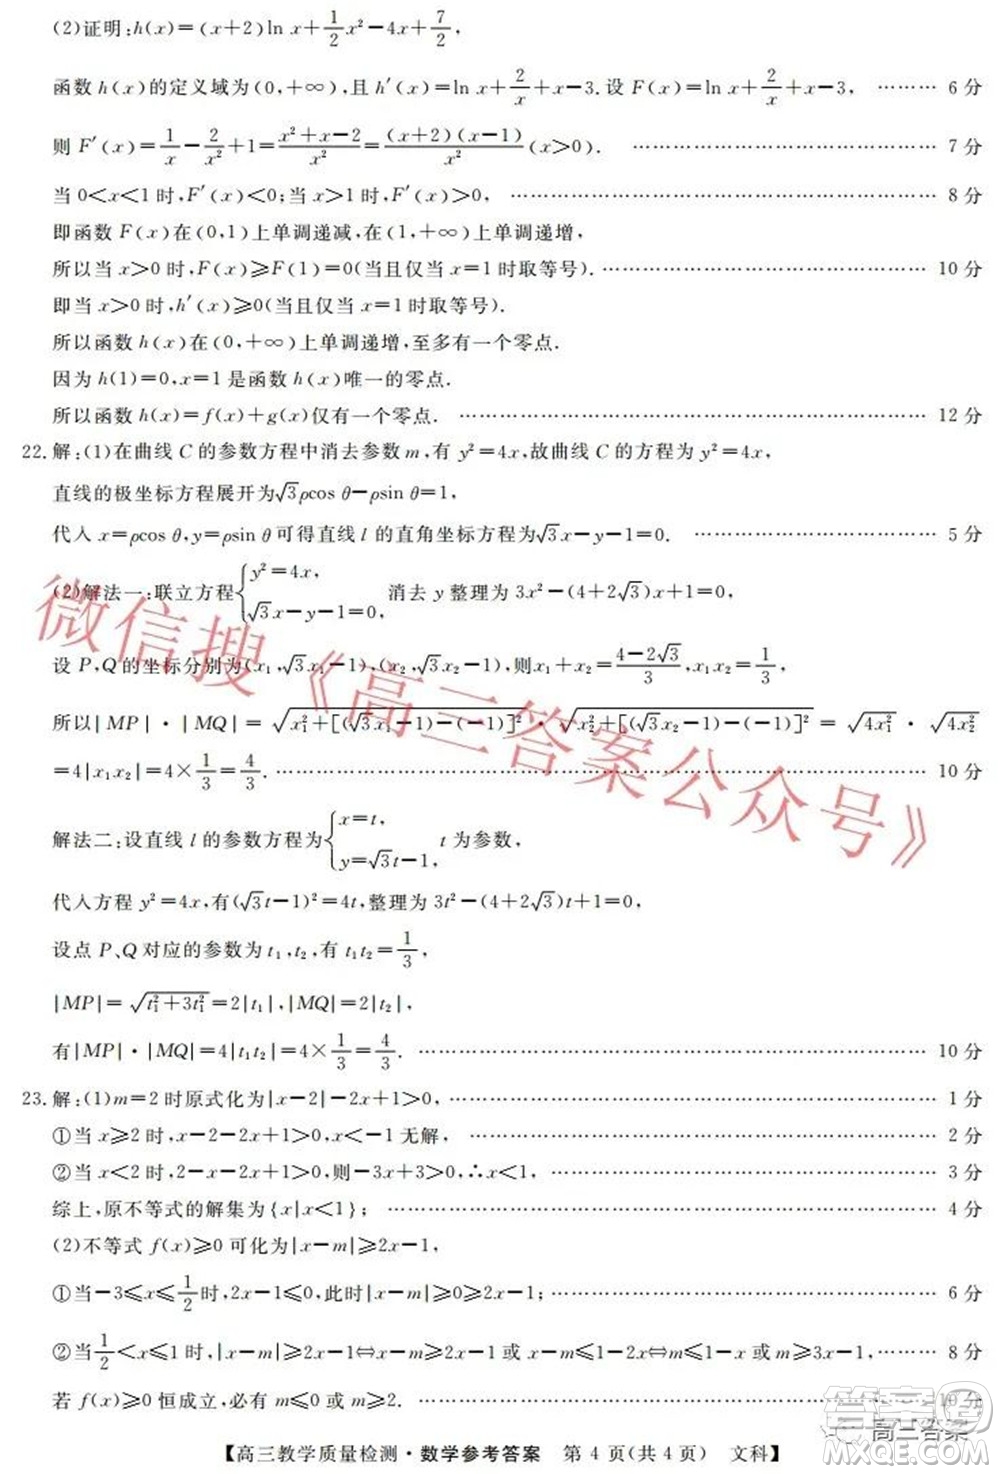 (2)证明:h(x)=(x+2)ln x+1/2x²-4x+7/2,
函数 h(x)的定义域为(0,+∞),且 h′(x)=ln x+2/x+x-3.设 F(x)=ln x+2/x+x-3, ……… 6 分
则 F′(x)=1/x-2/x²+1=(x²+x-2)/x²=(x+2)(x-1)/x²(x>0). ……… 7 分
当 0<x<1 时,F′(x)<0;当 x>1 时,F′(x)>0, ……… 8 分
即函数 F(x)在(0,1)上单调递减,在(1,+∞)上单调递增,
所以当 x>0 时,F(x)⩾F(1)=0(当且仅当 x=1 时取等号). ……… 10 分
即当 x>0 时,h′(x)⩾0(当且仅当 x=1 时取等号).
所以函数 h(x)在(0,+∞)上单调递增,至多有一个零点.
因为 h(1)=0,x=1 是函数 h(x)唯一的零点.
所以函数 h(x)=f(x)+g(x)仅有一个零点. ……… 12 分
22.解:(1)在曲线 C 的参数方程中消去参数 m,有 y²=4x,故曲线 C 的方程为 y²=4x,
直线的极坐标方程展开为√3ρcos θ-ρsin θ=1,
代入 x=ρcos θ,y=ρsin θ 可得直线 l 的直角坐标方程为√3x-y-1=0. ……… 5 分
(2)解法一:联立方程{y²=4x, √3x-y-1=0, 消去 y 整理为 3x²-(4+2√3)x+1=0,
设 P,Q 的坐标分别为(x₁,√3x₁-1),(x₂,√3x₂-1),则x₁+x₂=(4-2√3)/3,x₁x₂=1/3,
所以|MP|·|MQ|=√(x₁²+[(√3x₁-1)-(-1)]²)·√(x₂²+[(√3x₂-1)-(-1)]²)=√(4x₁²)·√(4x₂²)
=4|x₁x₂|=4×1/3=4/3. ……… 10 分
解法二:设直线 l 的参数方程为{x=t, y=√3t-1, t 为参数,
代入方程 y²=4x,有(√3t-1)²=4t,整理为 3t²-(4+2√3)t+1=0,
设点 P、Q 对应的参数为 t₁,t₂,有 t₁t₂=1/3,
|MP|=√(t₁²+3t₁²)=2|t₁|,|MQ|=2|t₂|,
有|MP|·|MQ|=4|t₁t₂|=4×1/3=4/3. ……… 10 分
23.解:(1)m=2 时原式化为|x-2|-2x+1>0, ……… 1 分
①当 x⩾2 时,x-2-2x+1>0,x<-1 无解, ……… 2 分
②当 x<2 时,2-x-2x+1>0,则-3x+3>0,∴x<1, ……… 3 分
综上,原不等式的解集为{x|x<1}; ……… 4 分
(2)不等式 f(x)⩾0 可化为|x-m|⩾2x-1,
①当-3⩽x⩽1/2时,2x-1⩽0,|x-m|⩾0⩾2x-1; ……… 6 分
②当1/2<x⩽1 时,|x-m|⩾2x-1⇔x-m⩾2x-1 或 x-m⩽1-2x⇔m⩽1-x 或 m⩾3x-1, ……… 8 分
若 f(x)⩾0 恒成立,必有 m⩽0 或 m⩾2. ……… 10 分
微信搜《高三答案公众号》
高三答案
【高三教学质量检测·数学参考答案 第 4 页(共 4 页) 文科】